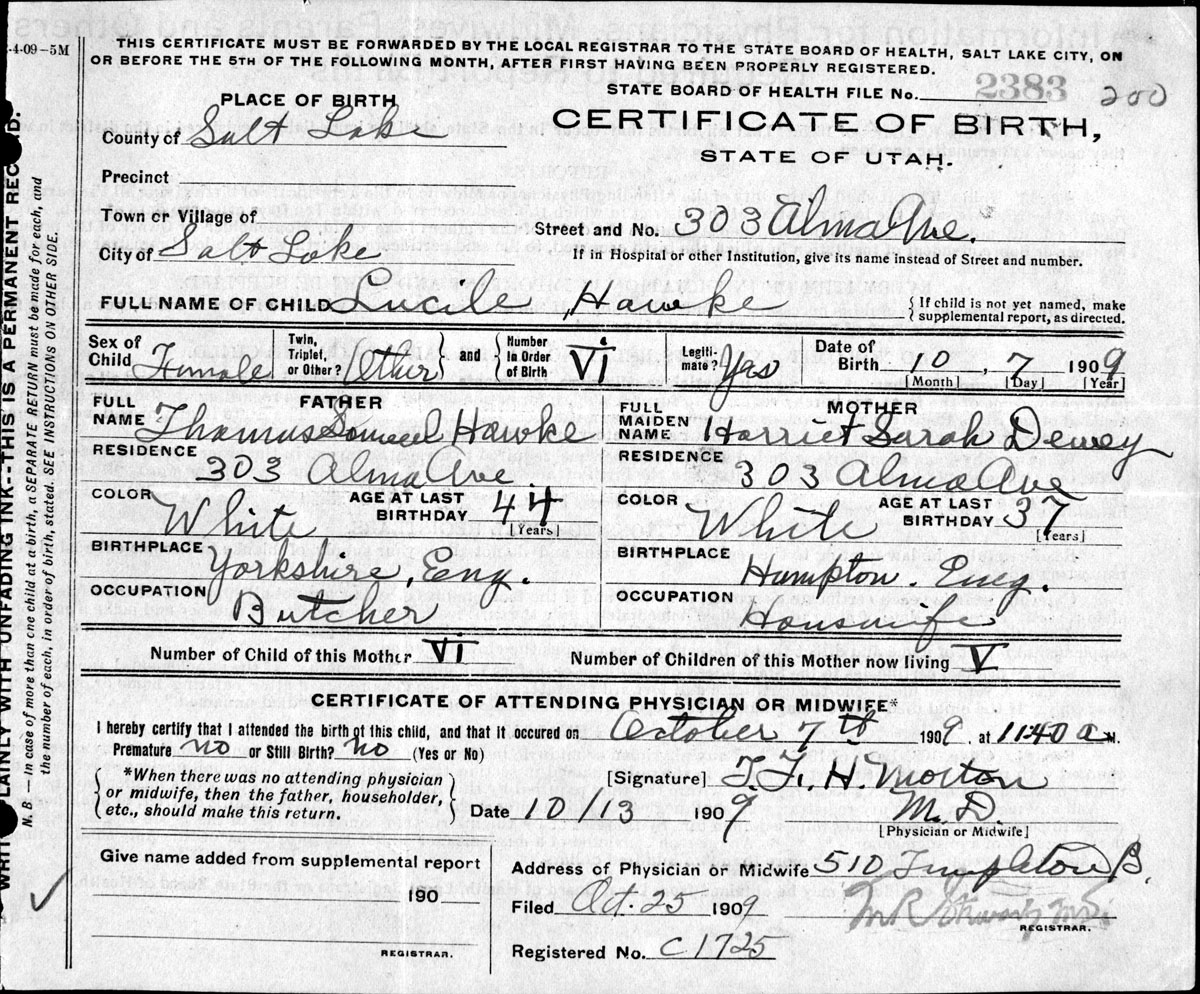 -4-09-5M
THIS CERTIFICATE MUST BE FORWARDED BY THE LOCAL REGISTRAR TO THE STATE BOARD OF HEALTH, SALT LAKE CITY, ON
OR BEFORE THE 5TH OF THE FOLLOWING MONTH, AFTER FIRST HAVING BEEN PROPERLY REGISTERED.
STATE BOARD OF HEALTH FILE No. 2383 200
PLACE OF BIRTH
CERTIFICATE OF BIRTH,
STATE OF UTAH.
County of Salt Lake
Precinct
Town or Village of
Street and No. 303 Alma Ave.
City of Salt Lake
If in Hospital or other Institution, give its name instead of Street and number.
FULL NAME OF CHILD Lucile Hawke
{If child is not yet named, make
supplemental report, as directed.
Sex of Child Female
Twin, Triplet, or Other? Other
and Number in Order of Birth VI
Legitimate? Yes
Date of Birth 10, 7 1909
[Month] [Day] [Year]
FATHER
FULL NAME Thomas Samuel Hawke
RESIDENCE 303 Alma Ave.
COLOR White AGE AT LAST BIRTHDAY 44
[Years]
BIRTHPLACE Yorkshire, Eng.
OCCUPATION Butcher
MOTHER
FULL MAIDEN NAME Harriet Sarah Dewey
RESIDENCE 303 Alma Ave
COLOR White AGE AT LAST BIRTHDAY 37
[Years]
BIRTHPLACE Humpton. Eng.
OCCUPATION Housewife
Number of Child of this Mother VI Number of Children of this Mother now living V
CERTIFICATE OF ATTENDING PHYSICIAN OR MIDWIFE*
I hereby certify that I attended the birth of this child, and that it occured on October 7th 1909, at 11:40 a M.
Premature? no or Still Birth? no (Yes or No)
{*When there was no attending physician
or midwife, then the father, householder,
etc., should make this return.}
[Signature] T. F. H. Morton
M. D.
Date 10/13 1909
[Physician or Midwife]
Give name added from supplemental report
190
REGISTRAR.
Address of Physician or Midwife 510 Templeton B.
Filed Oct. 25 1909
REGISTRAR.
Registered No. C1725
WRITE PLAINLY WITH UNFADING INK--THIS IS A PERMANENT RECORD.
N. B.—In case of more than one child at a birth, a SEPARATE RETURN must be made for each, and
the number of each, in order of birth, stated. SEE INSTRUCTIONS ON OTHER SIDE.